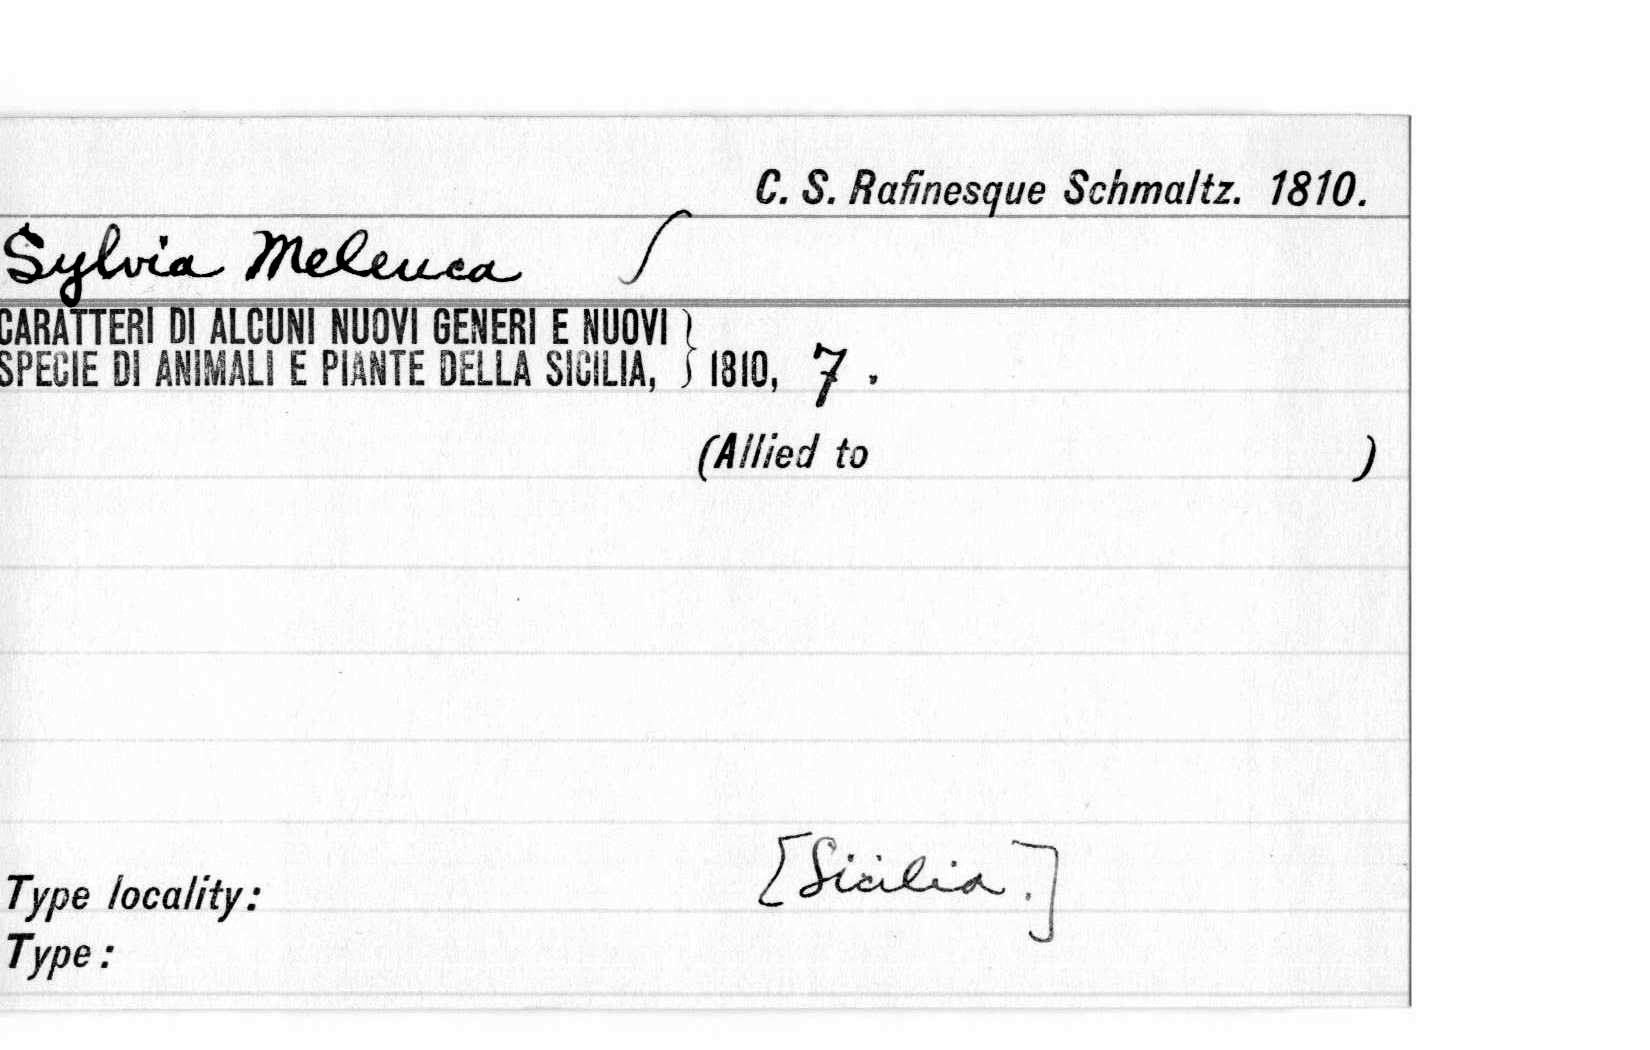 C. S. Rafinesque Schmaltz. 1810.
Sylvia Meleuca
CARATTERI DI ALCUNI NUOVI GENERI E NUOVI
SPECIE DI ANIMALI E PIANTE DELLA SICILIA, } 1810, 7.
(Allied to )
[Sicilia.]
Type locality:
Type: